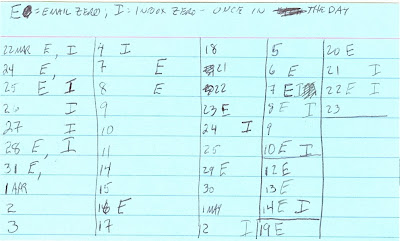 E = EMAIL ZERO, I = INBOX ZERO - ONCE IN THE DAY
22 MAR E, I
24 E,
25 E I
26 I
27 I
28 E, I
31 E,
1 APR
2
3
4 I
7 E
8 E
9
10
11
14
15
16 E
17
18
21
22
23 E
24 I
25
29 E
30
1 MAY
2 I
5
6 E
7 E I
8 E I
9
10 E I
12 E
13 E
14 E I
19 E
20 E
21 I
22 E I
23